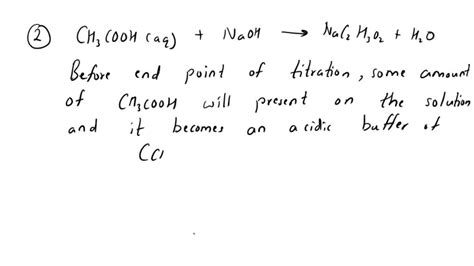 ② CH₃COOH (aq) + NaOH → NaC₂H₃O₂ + H₂O
Before end point of titration, some amount
of CH₃COOH will present on the solution
and it becomes an acidic buffer of
CCl